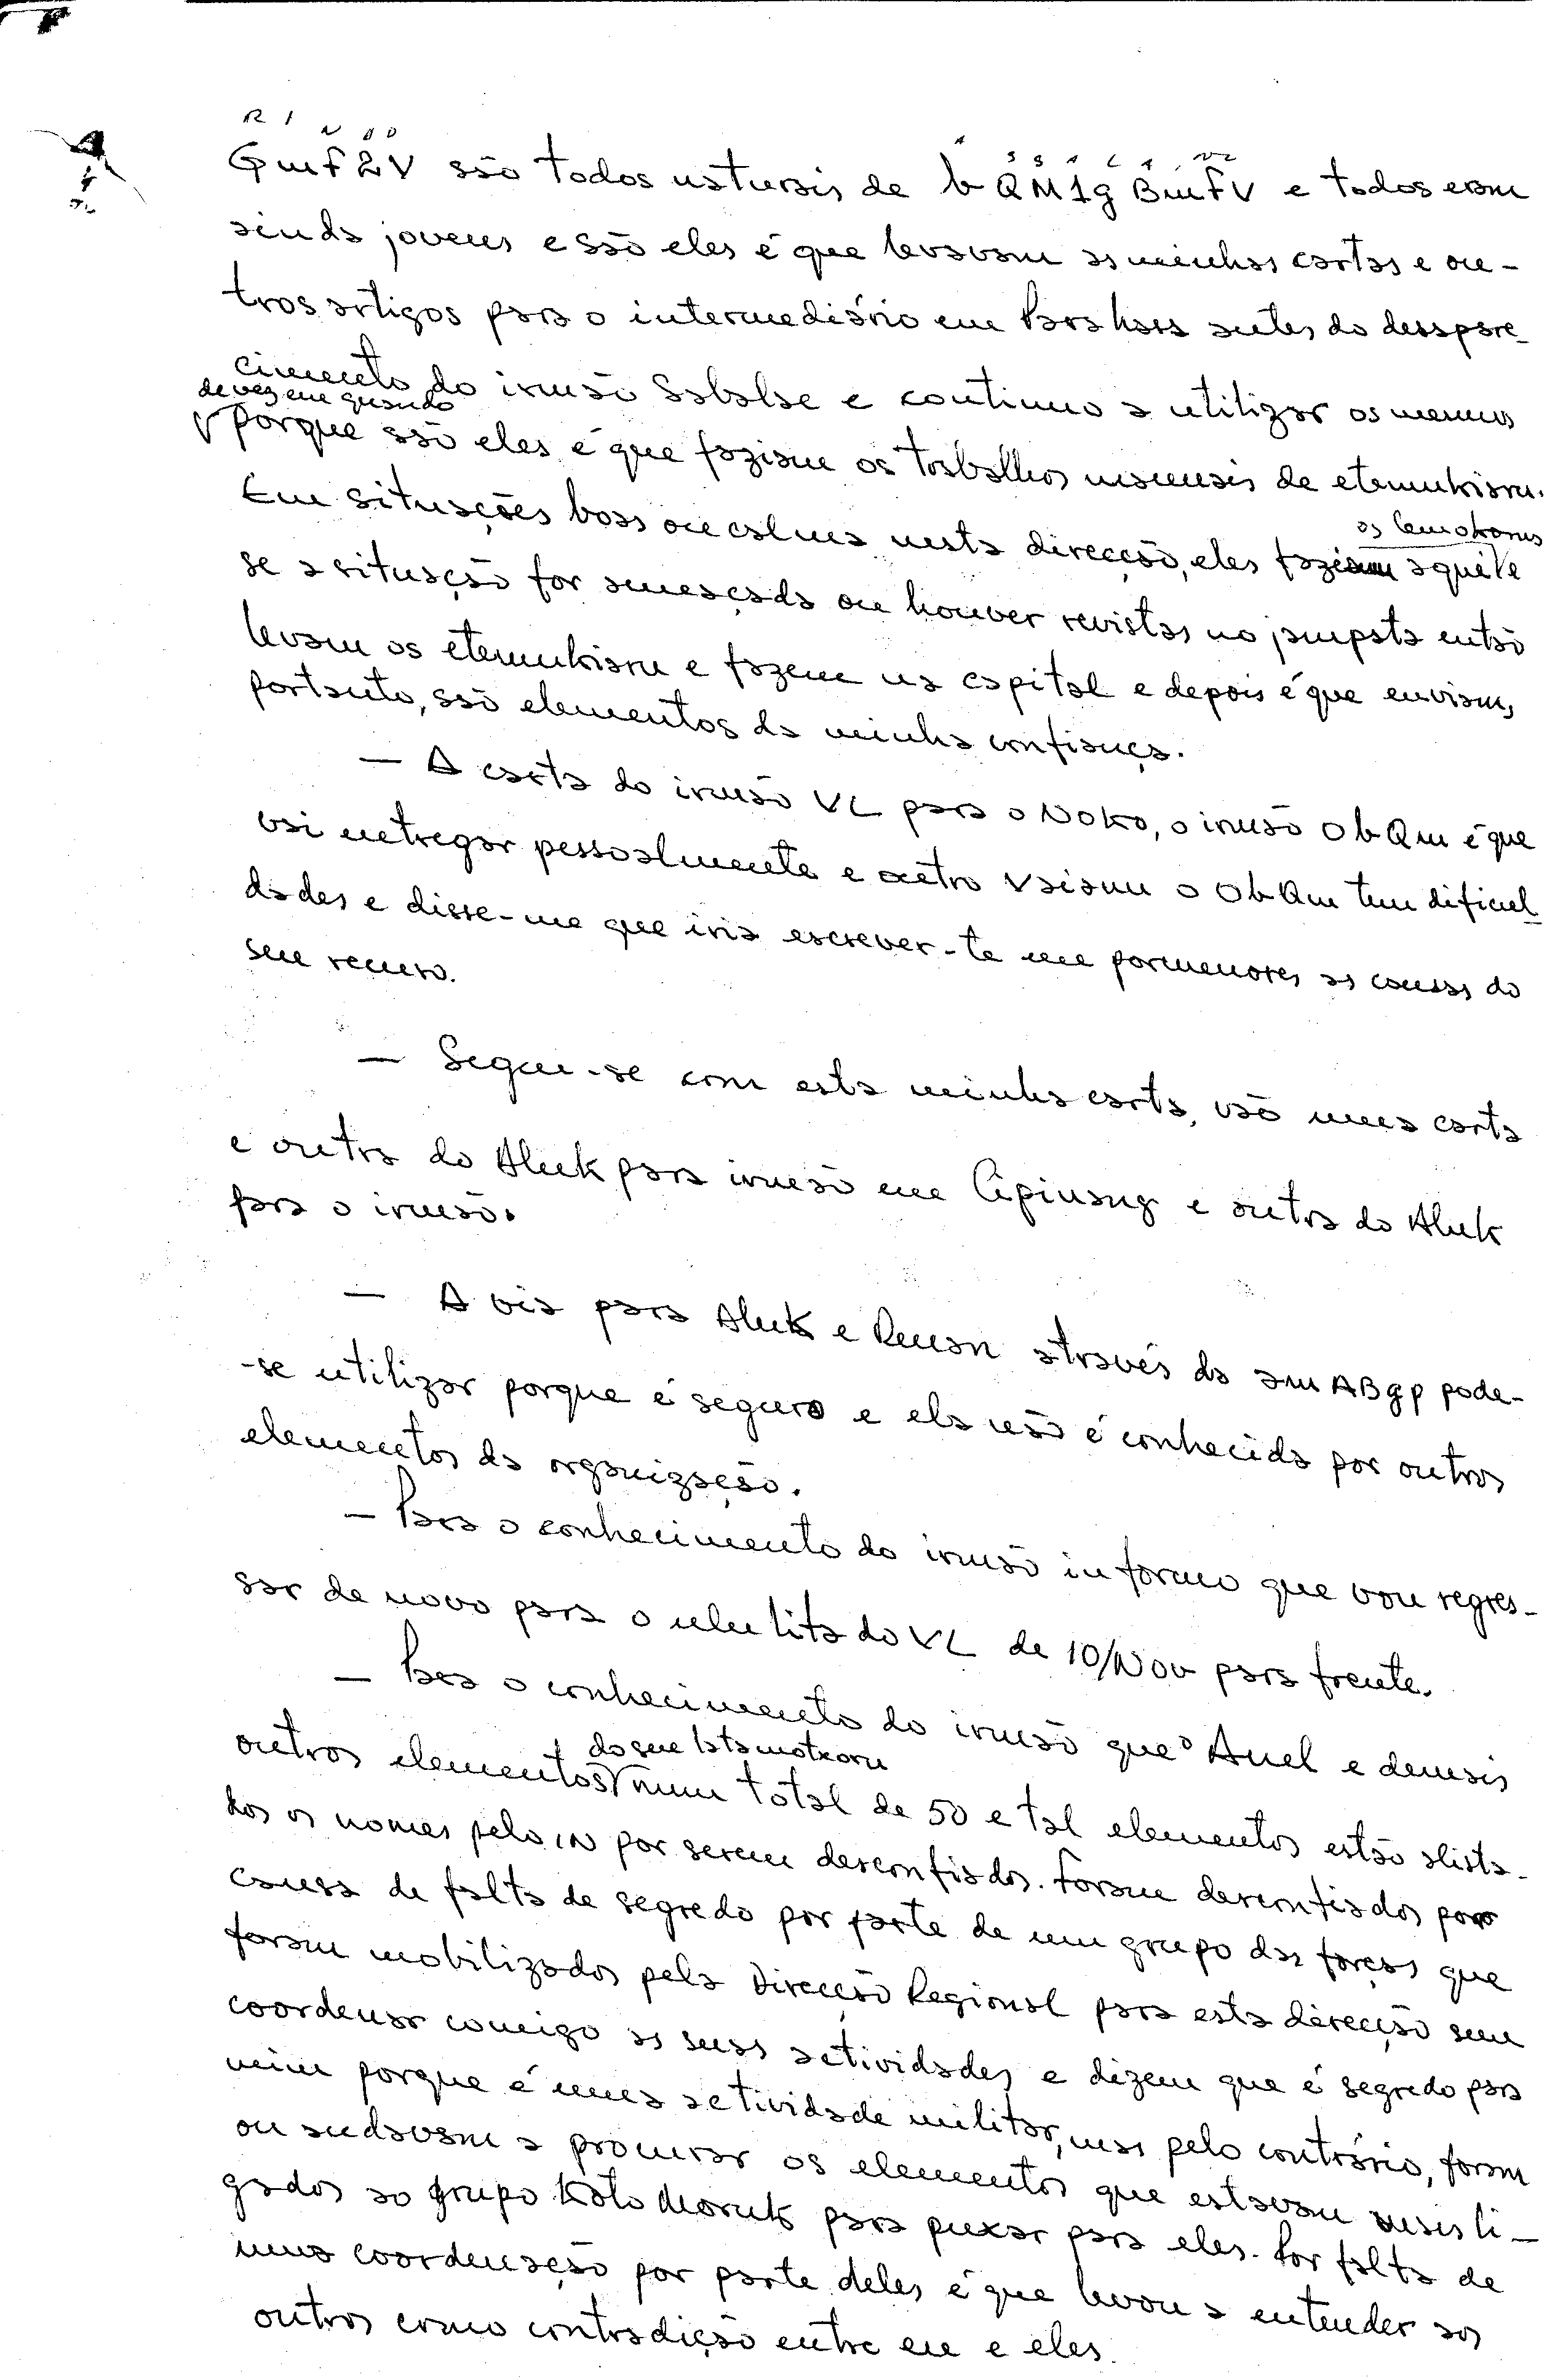 R I N O O
Gmf2V são todos naturais de bQM1gBmfV e todos eram
ainda jovens e são eles é que levavam as minhas cartas e ou-
tros artigos para o intermediário em antes do desapare-
cimento do irmão Sabalae e continuo a utilizar os mesmos
de vez em quando
porque são eles é que faziam os trabalhos manuais de etemukiaru.
Em situações boas ou calma nesta direcção, eles faziam aquile
os lemotomus
se a situação for ameaçada ou houver revistas no jampata então
levam os etemukiaru e fazem na capital e depois é que enviam,
portanto, são elementos da minha confiança.
— A carta do irmão VL para o Noko, o irmão ObQm é que
vai entregar pessoalmente e outro Vaiamu o ObQm tem dificul-
dades e disse-me que iria escrever-te em pormenores as causas do
seu recuso.
— Segue-se com esta minha carta, vão uma carta
e outra do Aluk para irmão em Cipinang e outra do Aluk
para o irmão.
— A via para Aluk e através da amABgp pode-
-se utilizar porque é seguro e ela não é conhecida por outros
elementos da organização.
— Para o conhecimento do irmão informo que vou regres-
sar de novo para o ulu lita do VL de 10/Nov para frente.
— Para o conhecimento do irmão que o Anel e demais
outros elementos num total de 50 e tal elementos estão alista-
dos os nomes pelo IN por serem desconfiados. Foram desconfiados por
causa de falta de segredo por parte de um grupo das forças que
foram mobilizados pela Direcção Regional para esta direcção sem
coordenar comigo as suas actividades e dizem que é segredo para
mim porque é uma actividade militar, mas pelo contrário, foram
ou andavam a procurar os elementos que estavam mais li-
gados ao grupo para puxar para eles. Por falta de
uma coordenação por parte deles é que levou a entender aos
outros como contradição entre eu e eles.